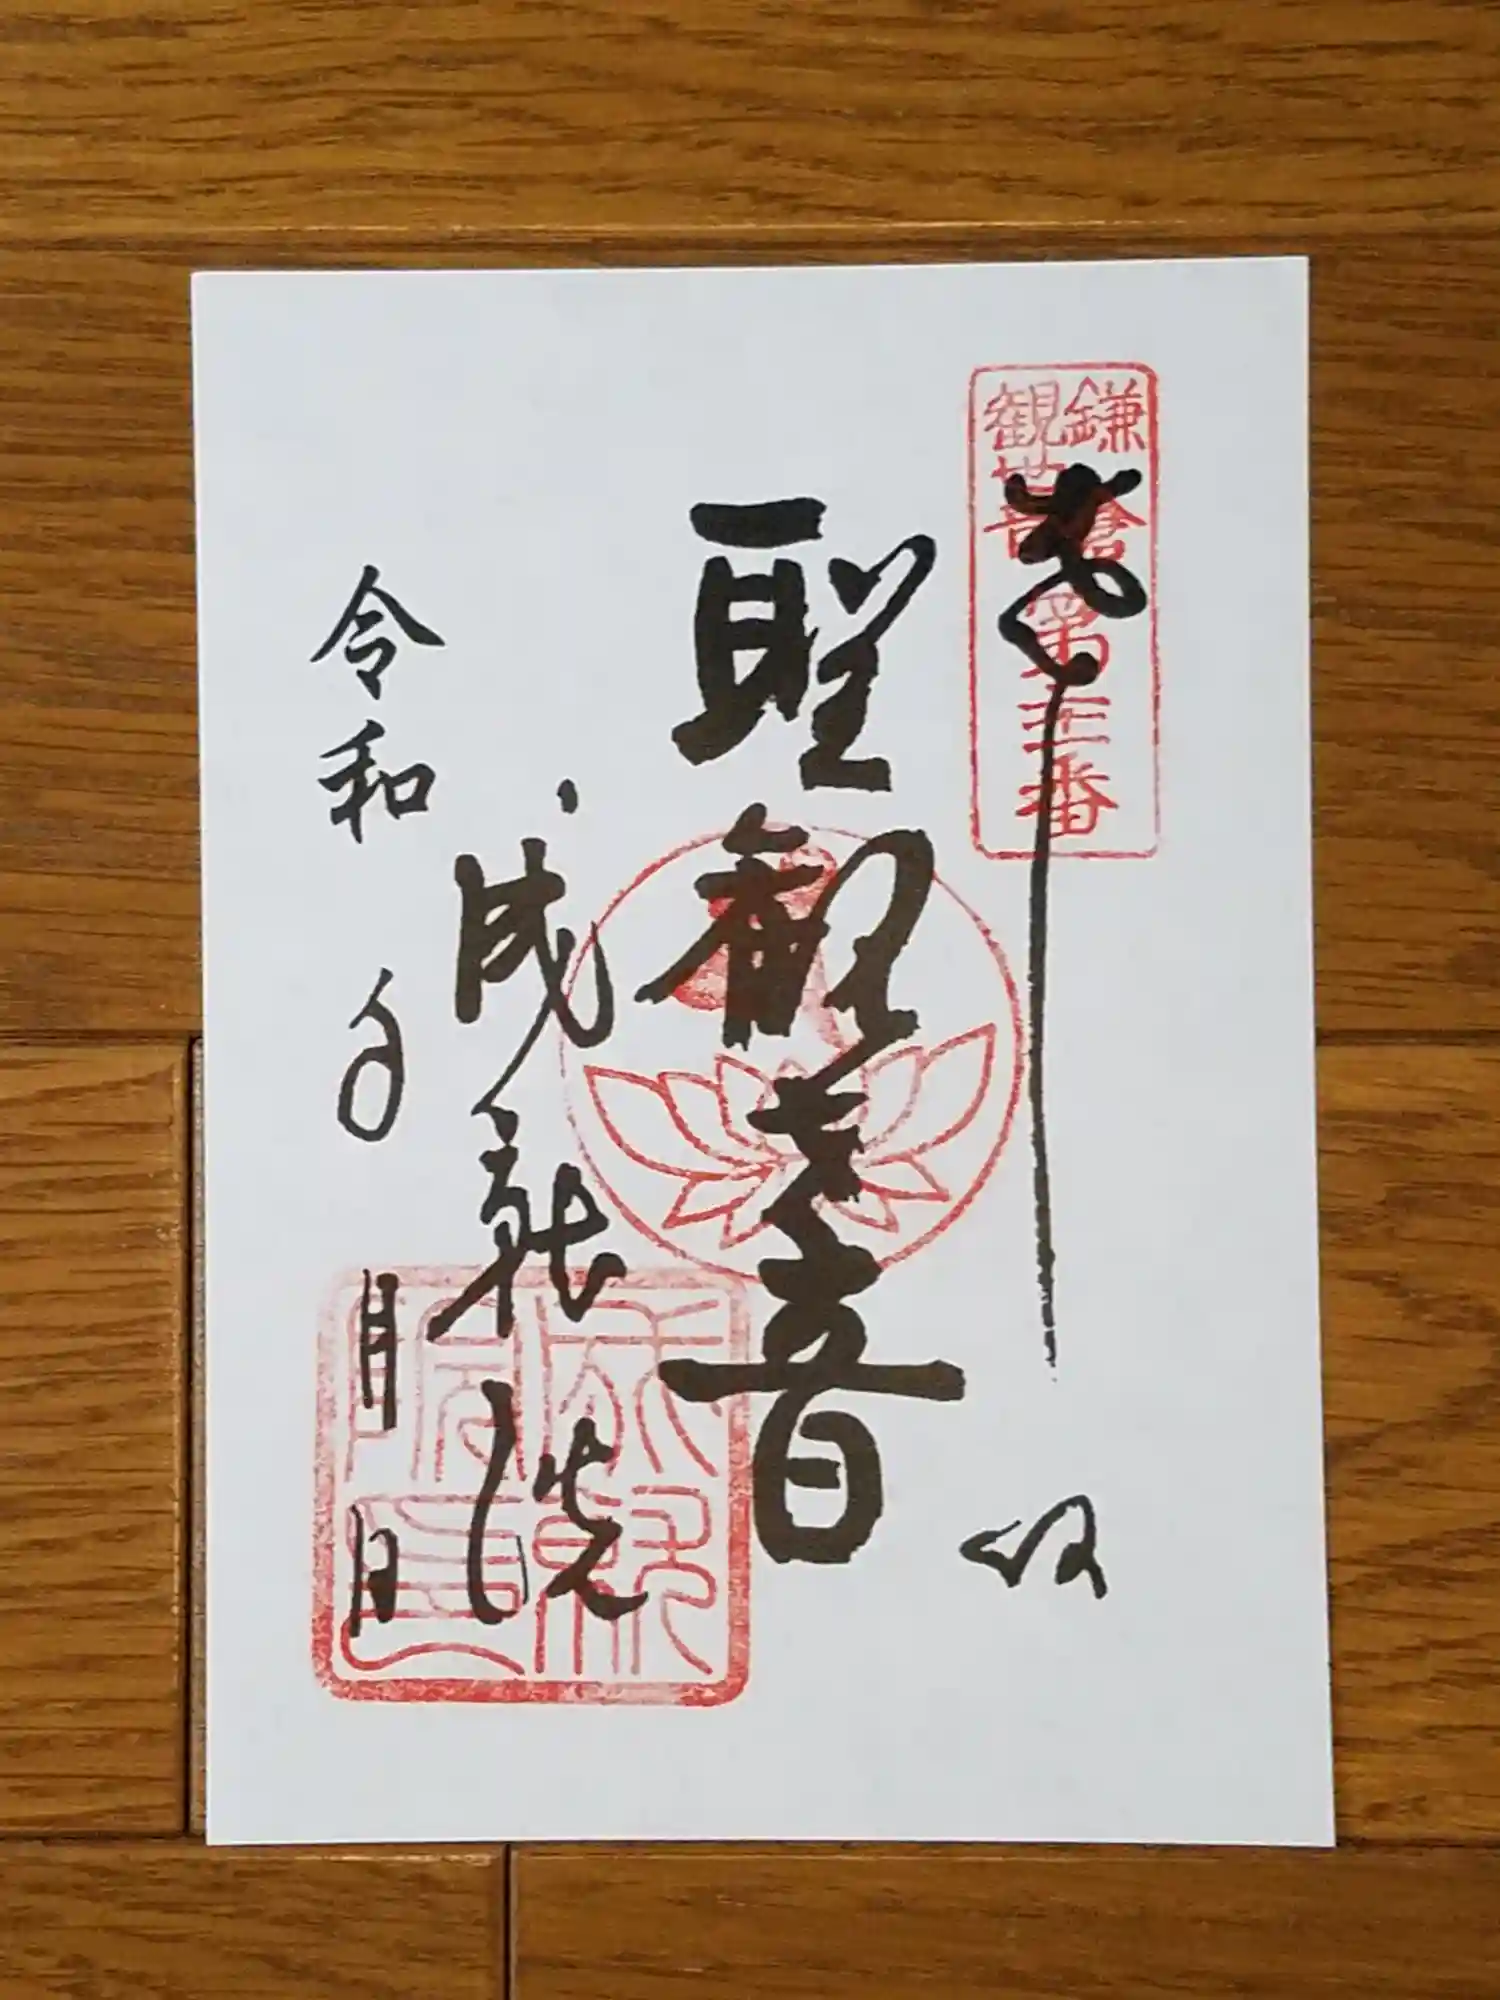 鎌倉
観世音
第廿一番
奉拝
聖観世音
成就院
令和 年 月 日